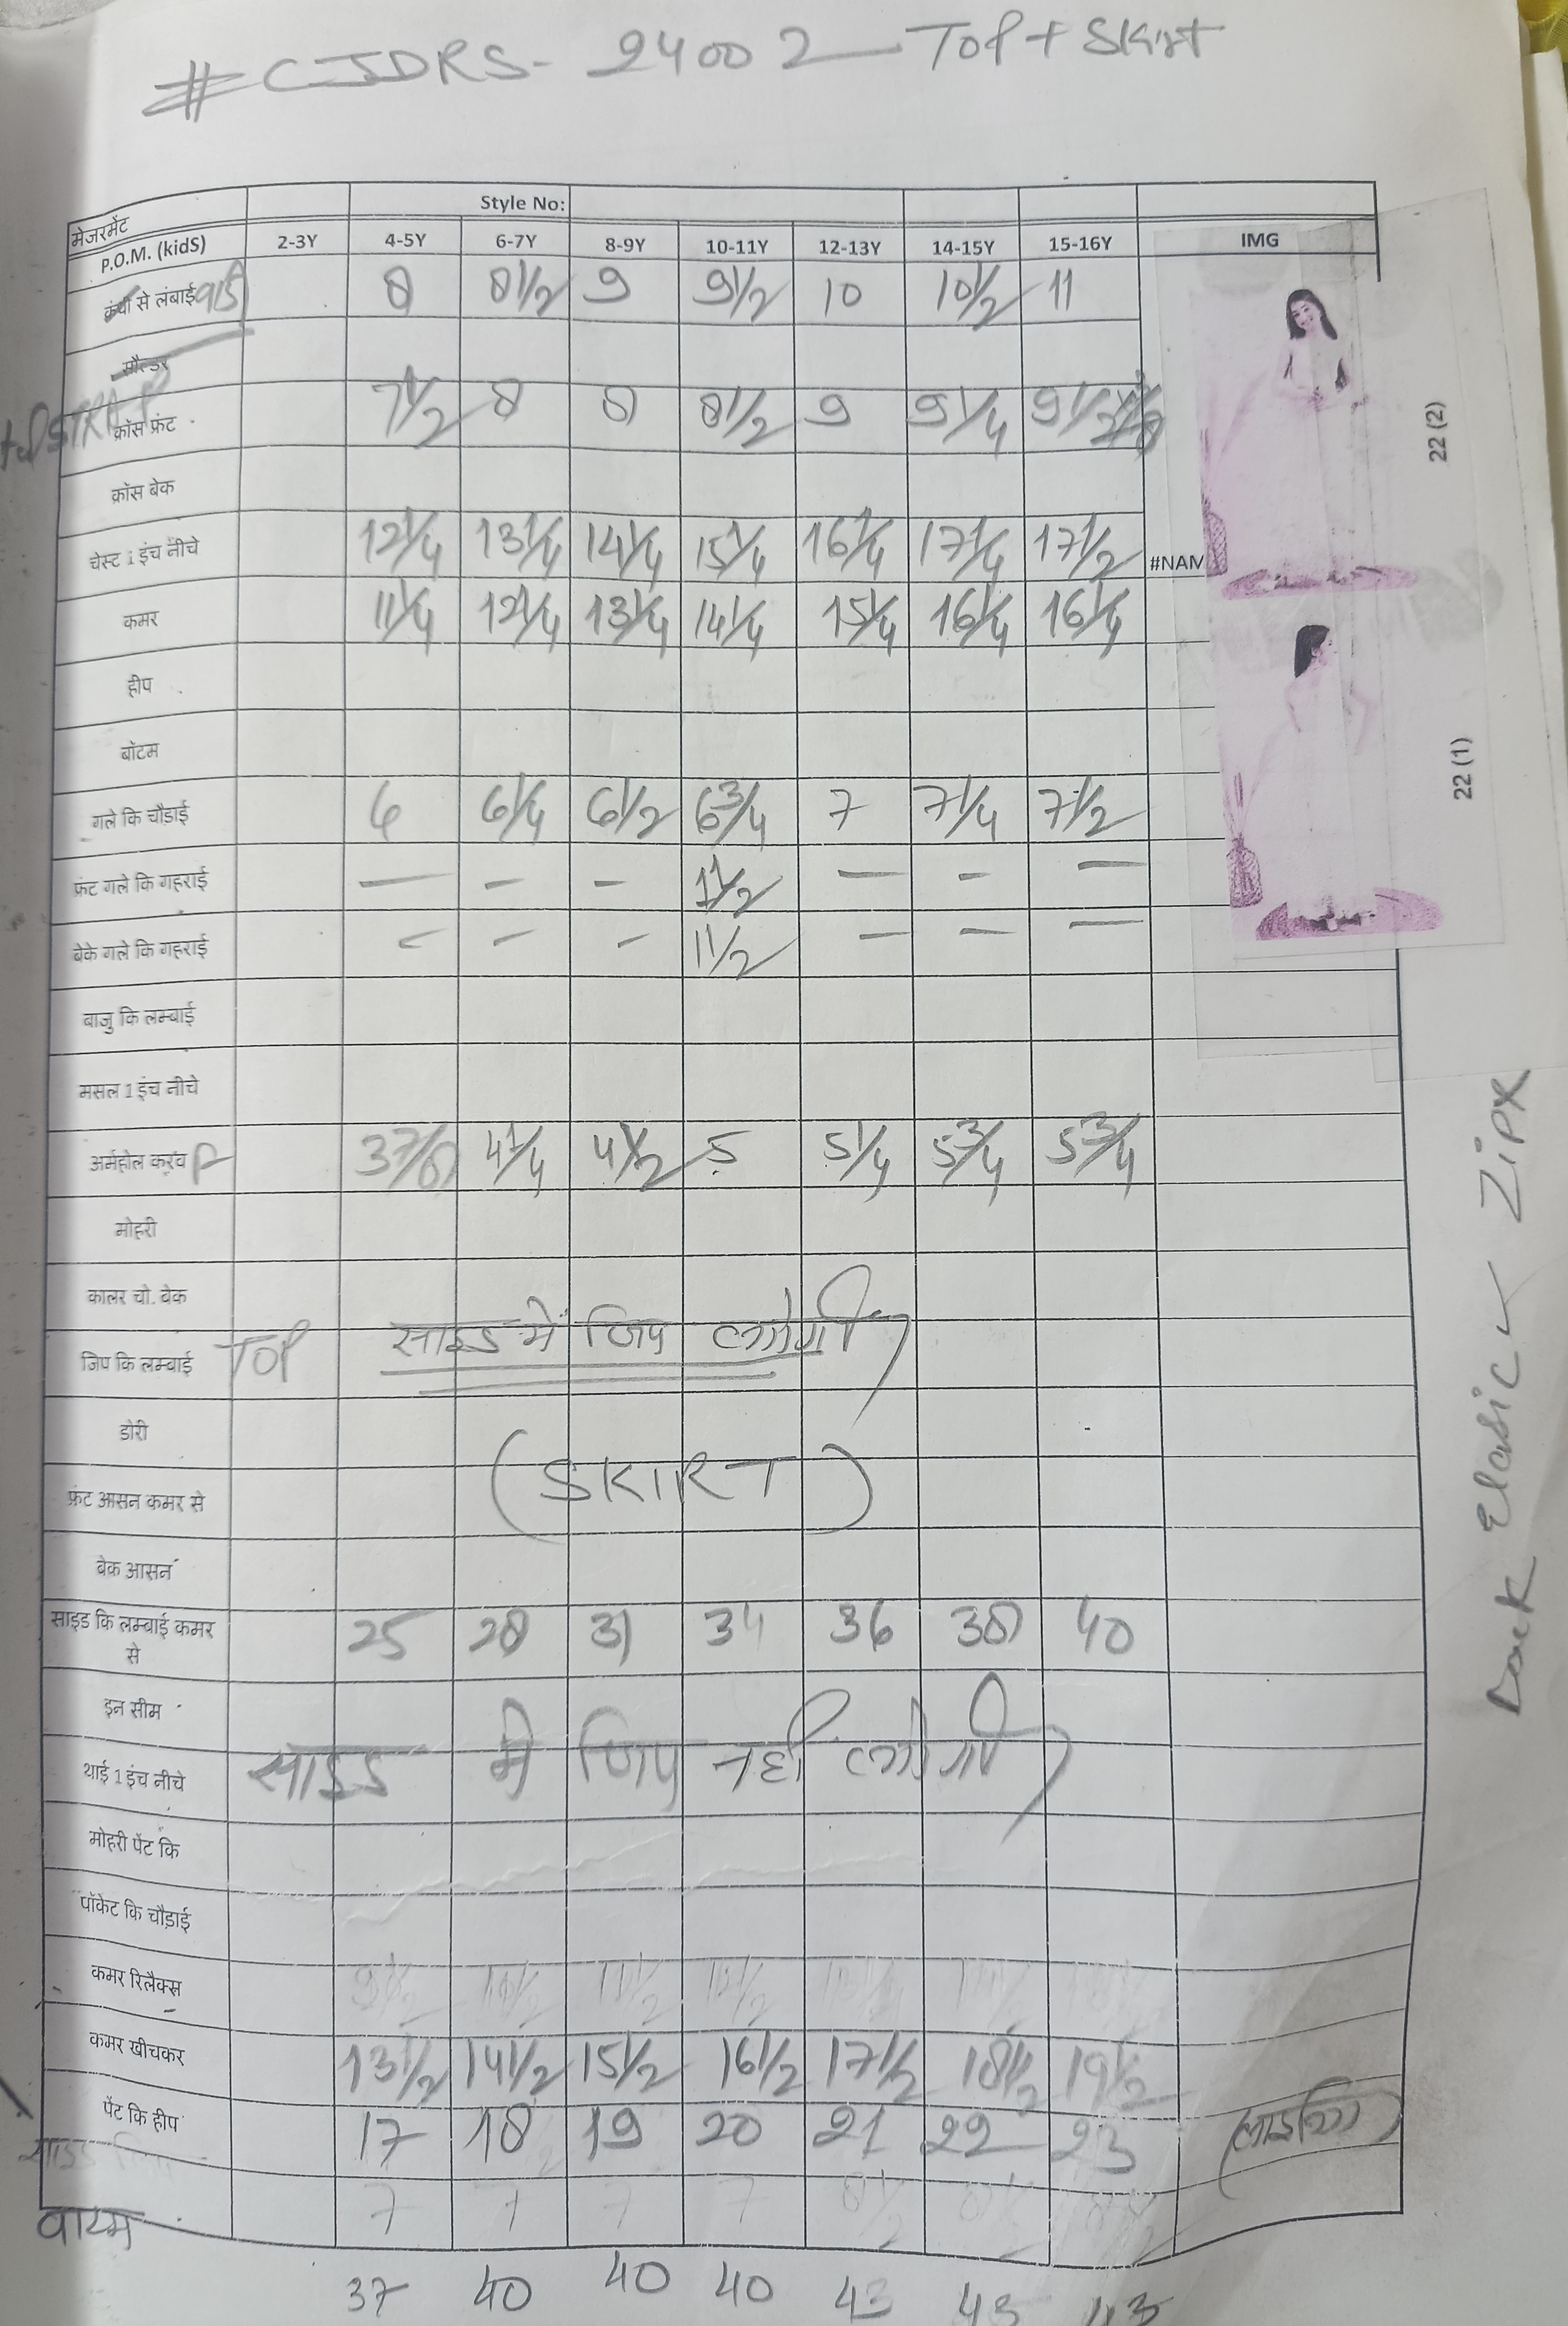 # CJDRS- 24002 Top + Skirt
Style No:
मेजरमेंट
P.O.M. (kidS) 2-3Y 4-5Y 6-7Y 8-9Y 10-11Y 12-13Y 14-15Y 15-16Y IMG
से लंबाई 8 8 1/2 9 9 1/2 10 10 1/2 11
सौल्डर
STRAP
क्रॉस फ्रंट 7 1/2 8 8 8 1/2 9 9 1/4 9 1/2
क्रॉस बेक
चेस्ट 1 इंच नीचे 12 1/4 13 1/4 14 1/4 15 1/4 16 1/4 17 1/4 17 1/2 #NAM
कमर 11 1/4 12 1/4 13 1/4 14 1/4 15 1/4 16 1/4 16 1/4
हीप
बॉटम
गले कि चौडाई 6 6 1/4 6 1/2 6 3/4 7 7 1/4 7 1/2
फ्रंट गले कि गहराई — — — 1 1/2 — — —
बेके गले कि गहराई — — — 1 1/2 — — —
बाजु कि लम्बाई
मसल 1 इंच नीचे
अर्महोल करव 3 7/8 4 1/4 4 1/2 5 5 1/4 5 3/4 5 3/4
मोहरी
कालर चो. बेक
जिप कि लम्बाई TOP साइड में जिप लगेगी
डोरी
(SKIRT)
फ्रंट आसन कमर से
बेक आसन
साइड कि लम्बाई कमर से 25 28 31 34 36 38 40
इन सीम
थाई 1 इंच नीचे साइड मे जिप नही लगेगी
मोहरी पेंट कि
पॉकेट कि चौड़ाई
कमर रिलैक्स
कमर खीचकर 13 1/2 14 1/2 15 1/2 16 1/2 17 1/2 18 1/2 19 1/2
पेंट कि हीप 17 18 19 20 21 22 23
7 7 7 7
37 40 40 40 43 43 43
22 (2)
22 (1)
Back Elasic ✓ Zip x